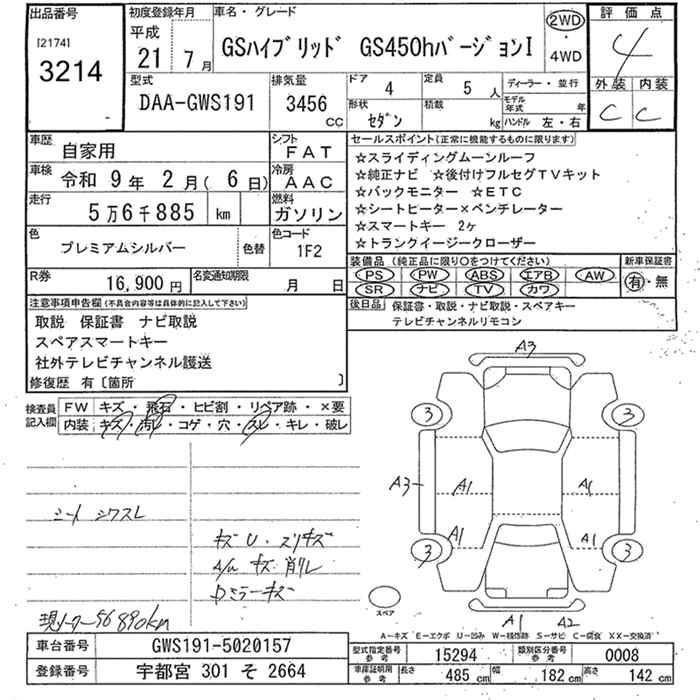 出品番号
[2174]
3214
初度登録年月
平成
21年7月
車名・グレード
GSハイブリッド GS450hバージョンI
2WD
・
4WD
評価点
4
外装 内装
C C
型式
DAA-GWS191
排気量
3456
CC
ドア 4
定員 5人
ディーラー・並行
形状 セダン
積載 kg
モデル年式 年
ハンドル 左・右
車歴 自家用
シフト FAT
車検 令和 9年 2月( 6日)
冷房 AAC
走行 5万6千885 km
燃料 ガソリン
色 プレミアムシルバー
色替
色コード 1F2
R券 16,900円
名変通知期限 月 日
セールスポイント(正常に機能するものに限ります)
☆スライディングムーンルーフ
☆純正ナビ ☆後付けフルセグTVキット
☆バックモニター ☆ETC
☆シートヒーター×ベンチレーター
☆スマートキー 2ヶ
☆トランクイージークローザー
装備品 (純正品に限り○をつけてください)
新車保証書
PS PW ABS エアB AW
SR ナビ TV カワ
有・無
後日品 保証書・取説・ナビ取説・スペアキー
テレビチャンネルリモコン
注意事項申告欄(不具合内容等は具体的に記入して下さい)
取説 保証書 ナビ取説
スペアスマートキー
社外テレビチャンネル護送
修復歴 有〔箇所 〕
検査員記入欄
FW キズ・飛石・ヒビ割・リペア跡・×要
内装 キズ・汚レ・コゲ・穴・スレ・キレ・破レ
シート シワスレ
キズ U・スリキズ
A/W キズ 削レ
Dミラーキズ
現メーター56890km
A3
3 3
A3 A1 A1
A1 A1
3 3
スペア
A1 A2
A-キズ E-エクボ U-凹み W-補修跡 S-サビ C-腐食 XX-交換済
車台番号 GWS191-5020157
登録番号 宇都宮 301 そ 2664
型式指定番号 参考 15294
類別区分番号 参考 0008
車庫証明用 参考 長さ 485 cm 幅 182 cm 高さ 142 cm